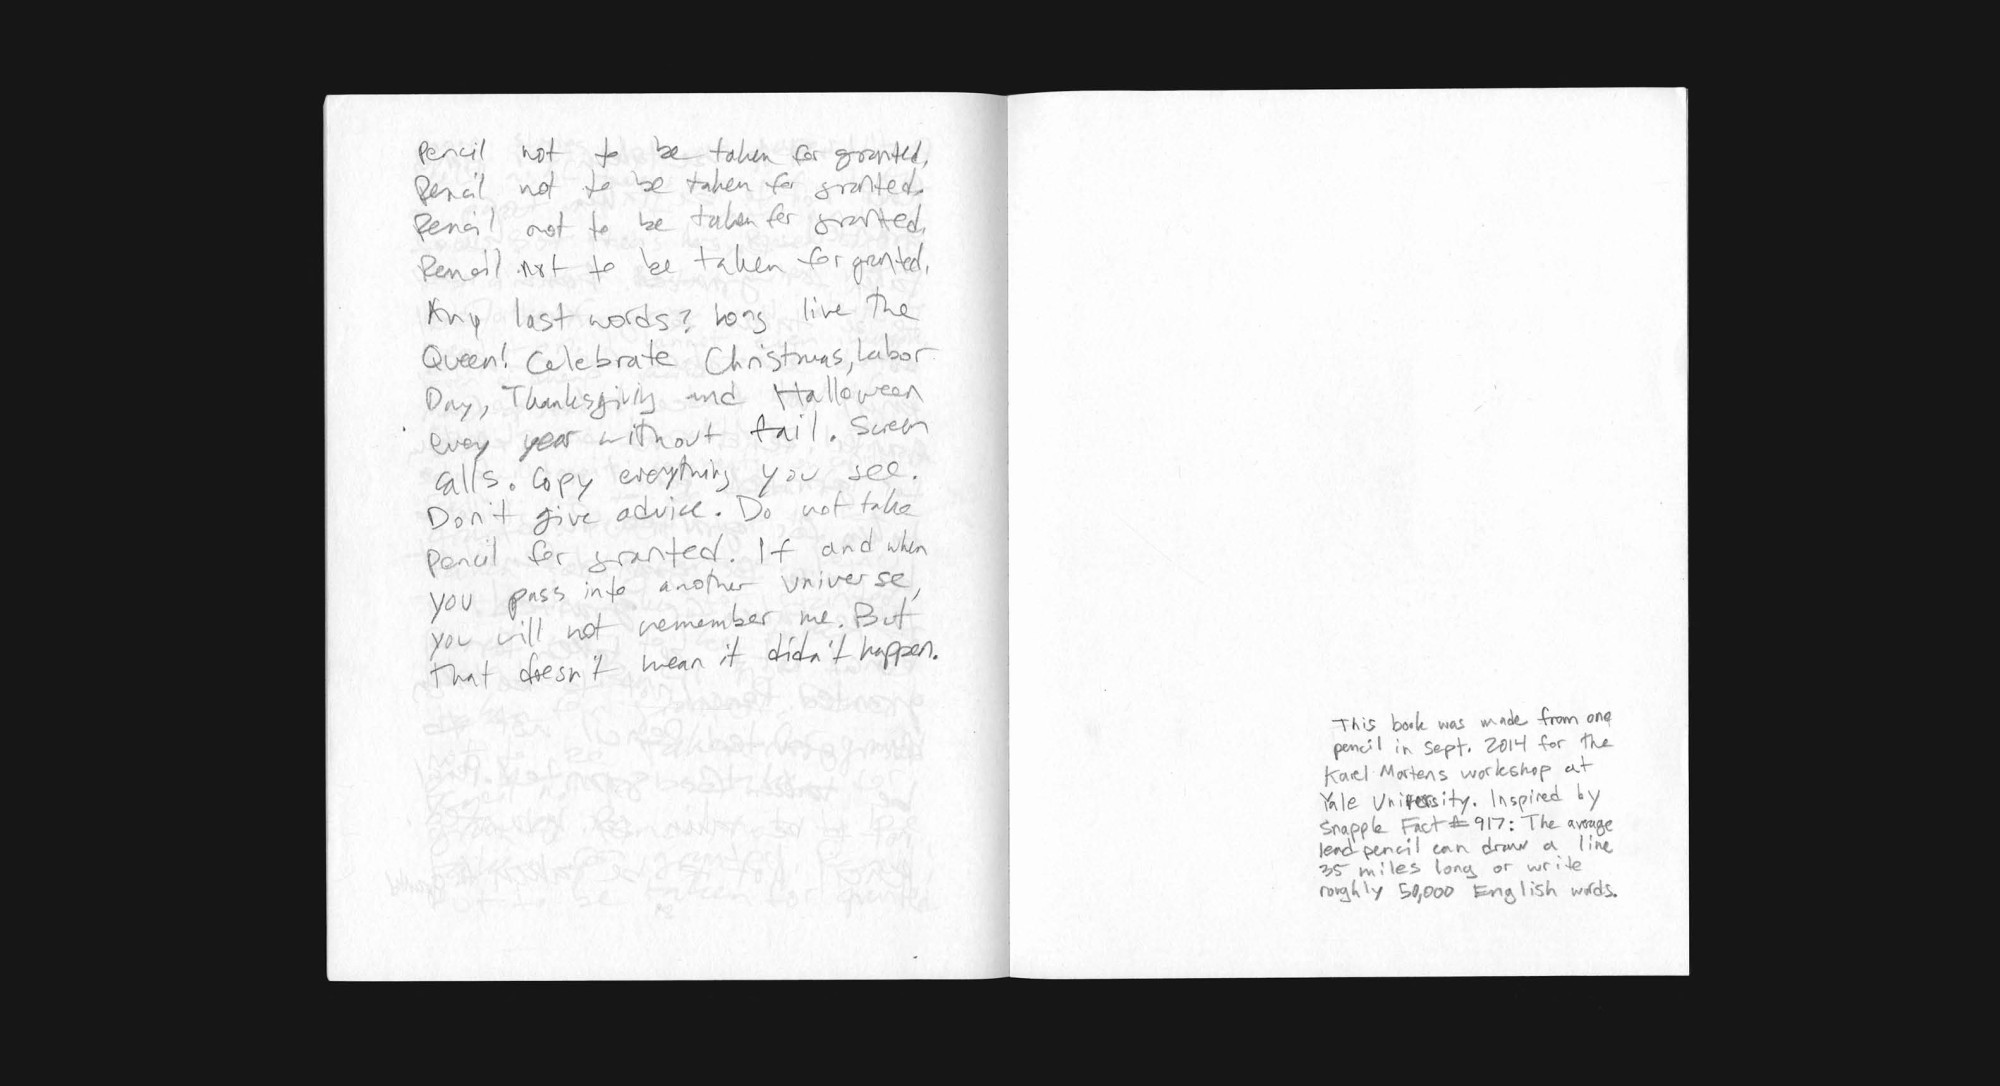 Pencil not to be taken for granted.
Pencil not to be taken for granted.
Pencil not to be taken for granted.
Pencil not to be taken for granted.
Any last words? Long live the
Queen! Celebrate Christmas, Labor
Day, Thanksgiving and Halloween
every year without fail. Screen
calls. Copy everything you see.
Don't give advice. Do not take
pencil for granted. If and when
you pass into another universe,
you will not remember me. But
that doesn't mean it didn't happen.
This book was made from one
pencil in Sept. 2014 for the
Karel Martens workshop at
Yale University. Inspired by
Snapple Fact #917: The average
lead pencil can draw a line
35 miles long or write
roughly 50,000 English words.